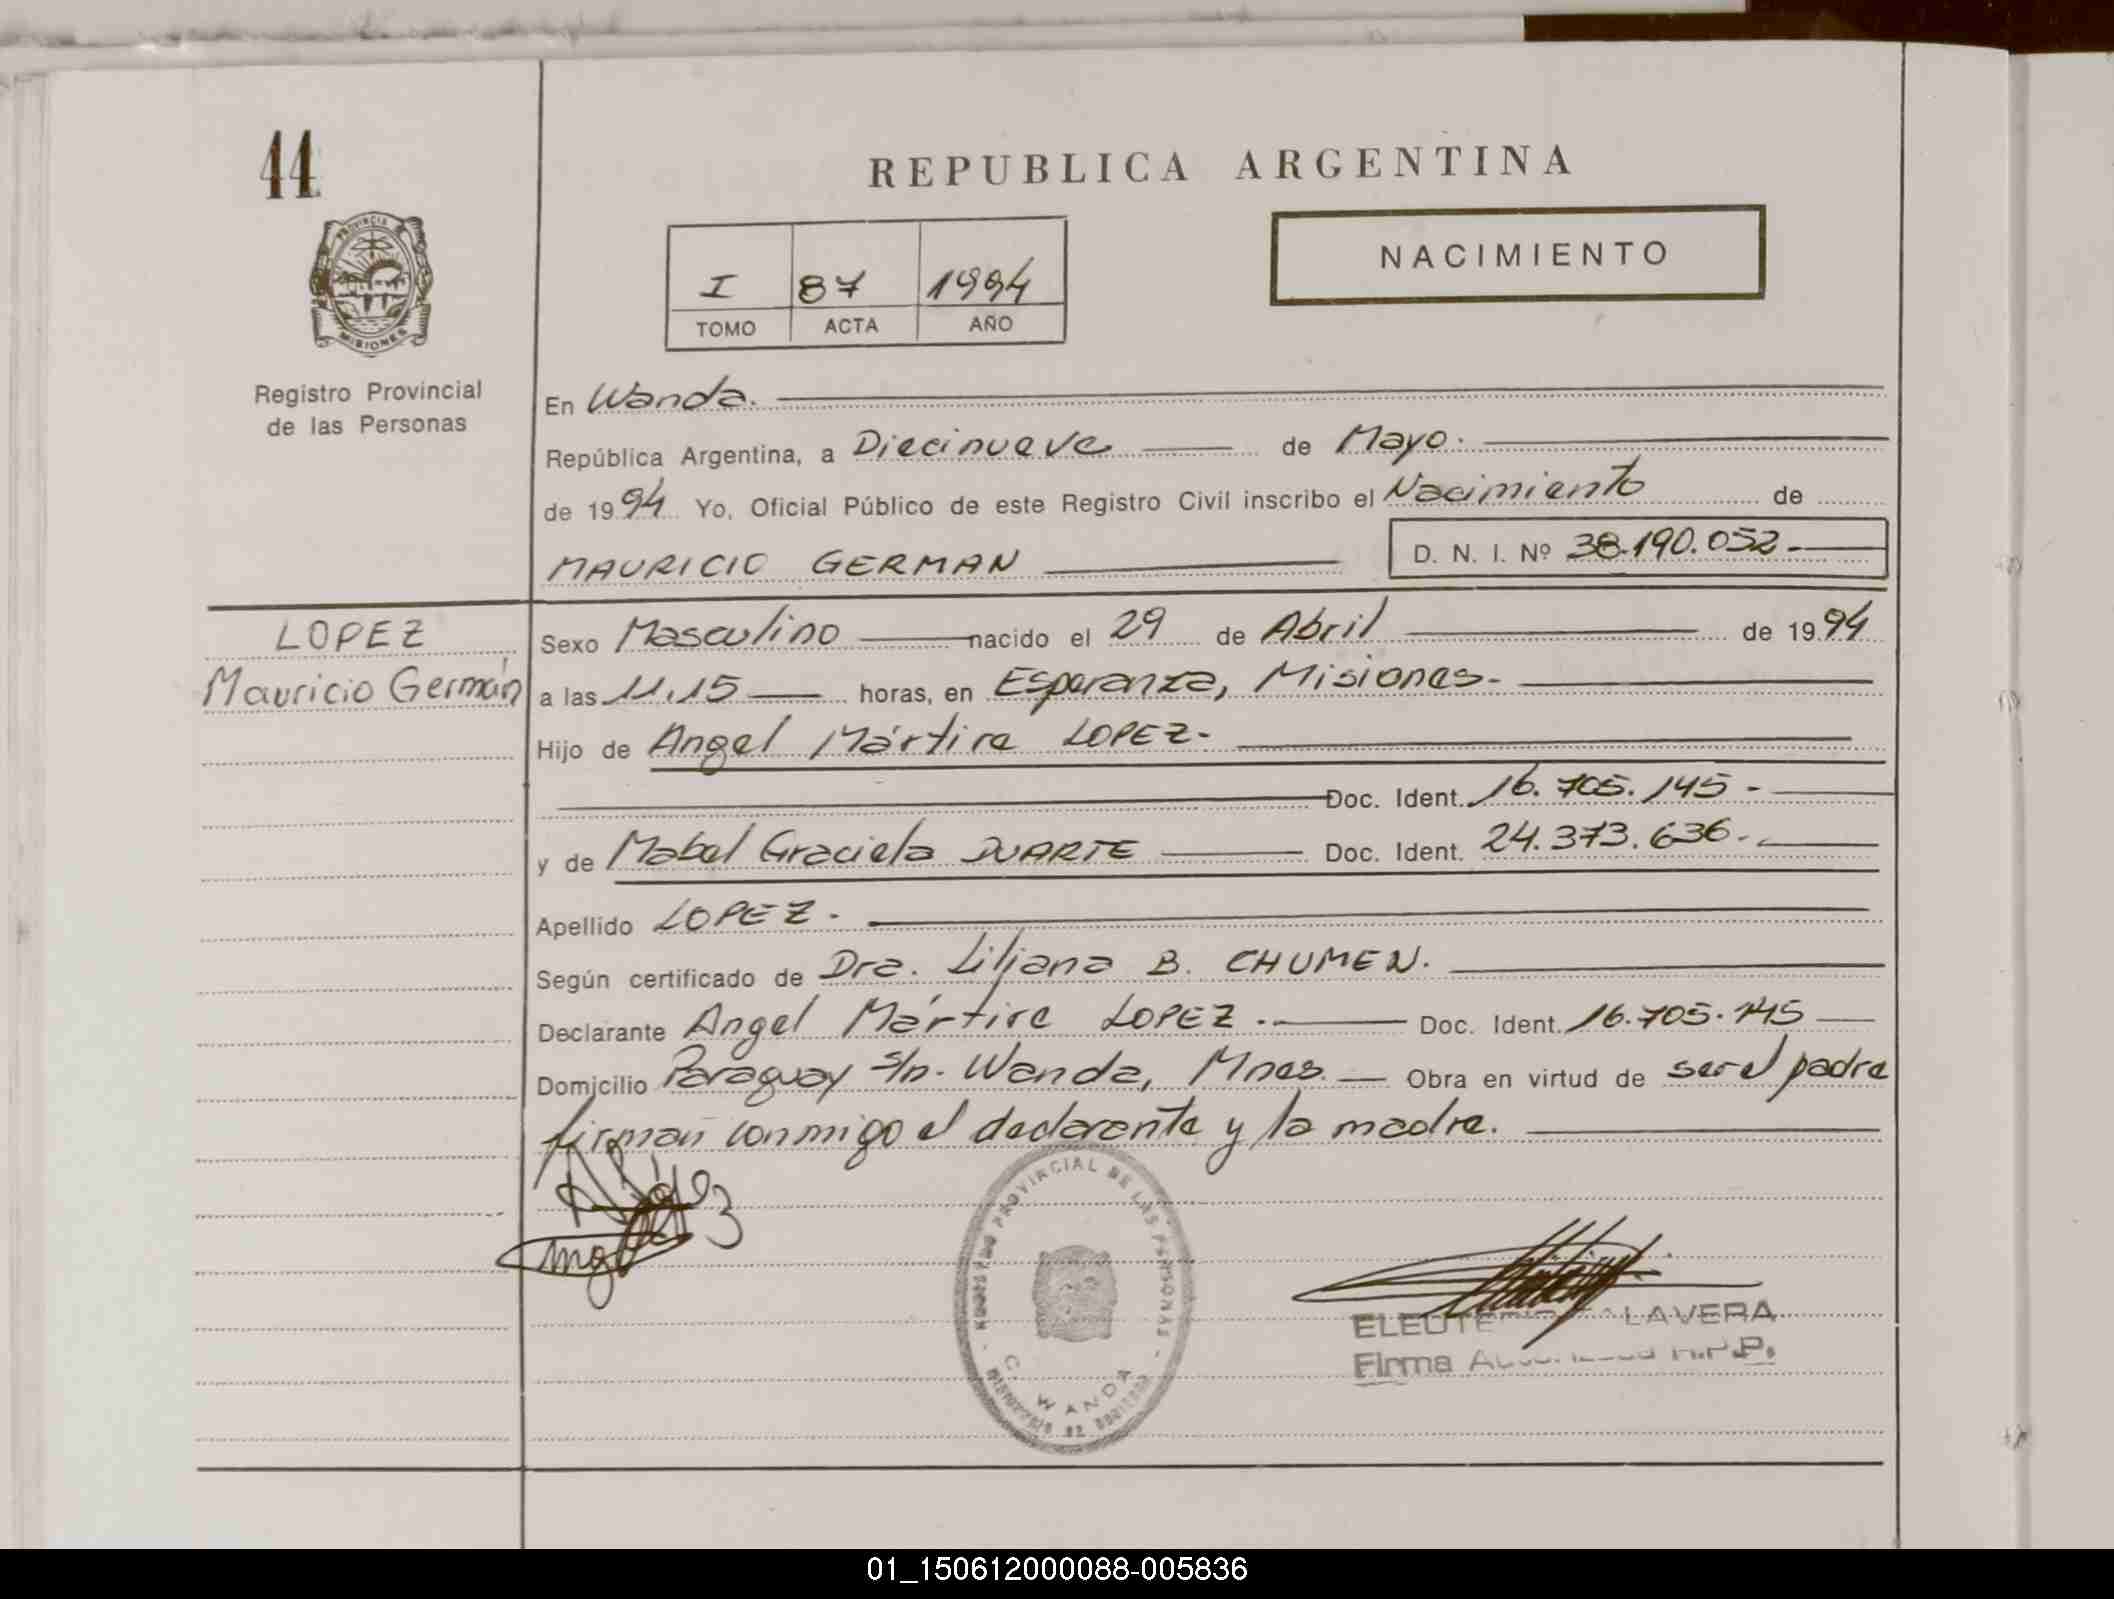 44
REPUBLICA ARGENTINA
NACIMIENTO
I 87 1994
TOMO ACTA AÑO
PROVINCIA
MISIONES
Registro Provincial
de las Personas
En Wanda.
República Argentina, a Diecinueve de Mayo.
de 1994 Yo, Oficial Público de este Registro Civil inscribo el Nacimiento de
MAURICIO GERMAN D. N. I. Nº 38.190.052.-
LOPEZ
Mauricio Germán
Sexo Masculino nacido el 29 de Abril de 1994
a las 11,15 horas, en Esperanza, Misiones.-
Hijo de Angel Mártire LOPEZ.-
Doc. Ident. 16.705.145.-
y de Mabel Graciela DUARTE Doc. Ident. 24.373.636.-
Apellido LOPEZ.
Según certificado de Dra. Liliana B. CHUMEN.
Declarante Angel Mártire LOPEZ.- Doc. Ident. 16.705.145
Domicilio Paraguay s/n. Wanda, Mnes. Obra en virtud de ser el padre
firman conmigo el declarante y la madre.
PROVINCIAL DE LAS PERSONAS
C. WANDA
LAVERA
Firma
01_150612000088-005836